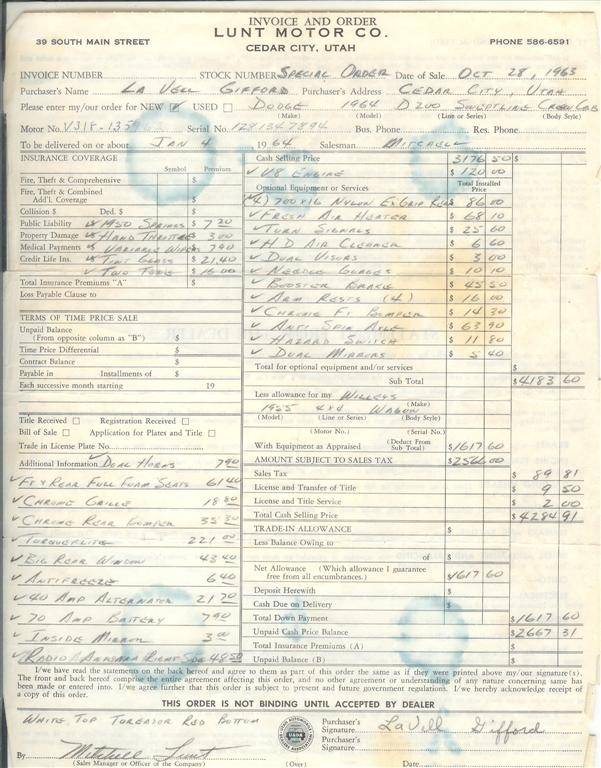 INVOICE AND ORDER
LUNT MOTOR CO.
39 SOUTH MAIN STREET CEDAR CITY, UTAH PHONE 586-6591
INVOICE NUMBER STOCK NUMBER Special Order Date of Sale Oct 28, 1963
Purchaser's Name La Vell Gifford Purchaser's Address Cedar City, Utah
Please enter my/our order for NEW USED Dodge 1964 D200 Sweptline Crew Cab
(Make) (Model) (Line or Series) (Body Style)
Motor No. V318-135 Serial No. 1281347894 Bus. Phone Res. Phone
To be delivered on or about Jan 4 1964 Salesman Mitchell
INSURANCE COVERAGE
Symbol Premium
Fire, Theft & Comprehensive $
Fire, Theft & Combined
Add'l. Coverage $
Collision $ Ded. $ $
Public Liability 1950 Springs $ 7 20
Property Damage Hand Throttle $ 3 00
Medical Payments Variable Wipers $ 7 90
Credit Life Ins. Tint Glass $ 21.40
Two Tone $ 16 00
Total Insurance Premiums "A" $
Loss Payable Clause to
TERMS OF TIME PRICE SALE
Unpaid Balance
(From opposite column as "B") $
Time Price Differential $
Contract Balance $
Payable in Installments of $
Each successive month starting 19
Title Received Registration Received
Bill of Sale Application for Plates and Title
Trade in License Plate No.
Additional Information Dual Horns 7 90
Ft & Rear Full Foam Seats 61 40
Chrome Grille 18 80
Chrome Rear Bumper
Torqueflite 221 00
Big Rear Window 43 40
Antifreeze 6 40
40 Amp Alternator 21 30
70 Amp Battery 7 90
Inside Mirror 3 00
Radio / Antenna Right Side 48 50
Cash Selling Price 3176 50
V8 Engine $ 120 00
Optional Equipment or Services Total Installed Price
(4) 700x16 Nylon Ex Grip Rear $ 86 00
Fresh Air Heater $ 68 10
Turn Signals $ 25 60
H D Air Cleaner $ 6 60
Dual Visors $ 3 00
Needle Guages $ 10 10
Booster Brake $ 45 50
Arm Rests (4) $ 16 00
Chrome Ft Bumper $ 14 30
Anti Spin Axle $ 63 90
Hazard Switch $ 11 80
Dual Mirrors $ 5 40
Total for optional equipment and/or services $
Sub Total $ 4183 60
Less allowance for my Willeys
(Make)
1955 4x4 Wagon
(Model) (Line or Series) (Body Style)
(Motor No.) (Serial No.)
With Equipment as Appraised (Deduct From Sub Total) $ 1617 60
AMOUNT SUBJECT TO SALES TAX $ 2566 00
Sales Tax $ 89 81
License and Transfer of Title $ 9 50
License and Title Service $ 2 00
Total Cash Selling Price $ 4284 91
TRADE-IN ALLOWANCE $
Less Balance Owing to
of $
Net Allowance (Which allowance I guarantee
free from all encumbrances.) $ 1617 60
Deposit Herewith $
Cash Due on Delivery $
Total Down Payment $ 1617 60
Unpaid Cash Price Balance $ 2667 31
Total Insurance Premiums (A) $
Unpaid Balance (B) $
I/we have read the statements on the back hereof and agree to them as part of this order the same as if they were printed above my/our signature(s).
The front and back hereof comprise the entire agreement affecting this order, and no other agreement or understanding of any nature concerning same has
been made or entered into. I/we agree further that this order is subject to present and future government regulations. I/we hereby acknowledge receipt of
a copy of this order.
THIS ORDER IS NOT BINDING UNTIL ACCEPTED BY DEALER
White Top Toreador Red Bottom Purchaser's Signature LaVell Gifford
Purchaser's Signature
By Mitchell Lunt
(Sales Manager or Officer of the Company) (Over) Date